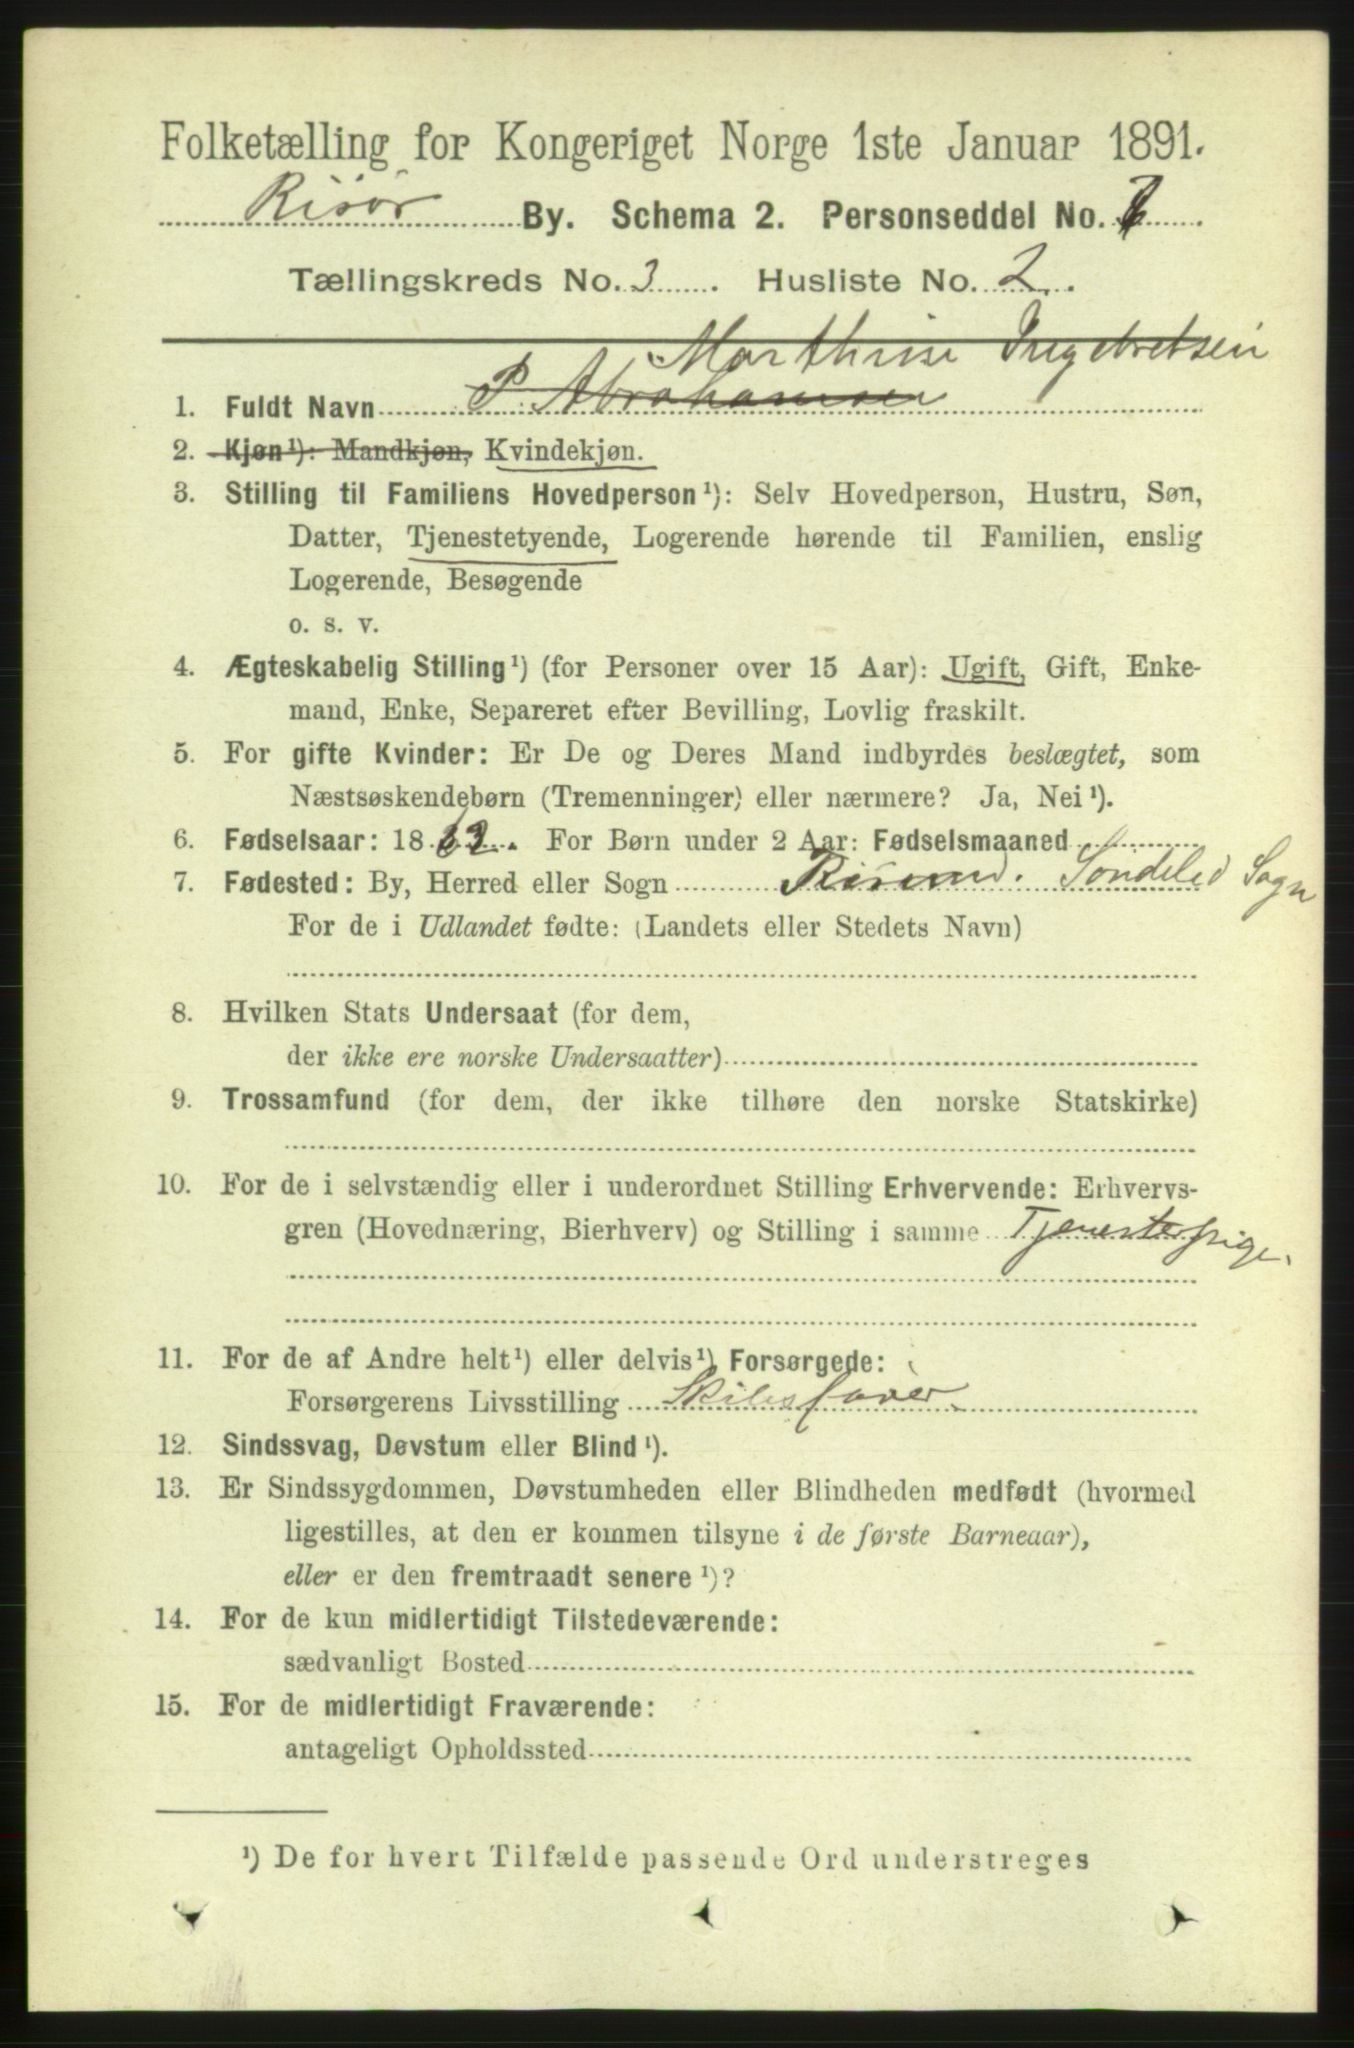 Folketælling for Kongeriget Norge 1ste Januar 1891.
Risør By. Schema 2. Personseddel No. 7
Tællingskreds No. 3 . Husliste No. 2 .
Marthine Ingebretsen
1. Fuldt Navn P. Abrahamsen
2. Kjøn¹): Mandkjøn, Kvindekjøn.
3. Stilling til Familiens Hovedperson¹): Selv Hovedperson, Hustru, Søn,
Datter, Tjenestetyende, Logerende hørende til Familien, enslig
Logerende, Besøgende
o. s. v.
4. Ægteskabelig Stilling¹) (for Personer over 15 Aar): Ugift, Gift, Enke-
mand, Enke, Separeret efter Bevilling, Lovlig fraskilt.
5. For gifte Kvinder: Er De og Deres Mand indbyrdes beslægtet, som
Næstsøskendebørn (Tremenninger) eller nærmere? Ja, Nei¹).
6. Fødselsaar: 18 . For Børn under 2 Aar: Fødselsmaaned
7. Fødested: By, Herred eller Sogn Søndeled Sogn
For de i Udlandet fødte: (Landets eller Stedets Navn)
8. Hvilken Stats Undersaat (for dem,
der ikke ere norske Undersaatter)
9. Trossamfund (for dem, der ikke tilhøre den norske Statskirke)
10. For de i selvstændig eller i underordnet Stilling Erhvervende: Erhvervs-
gren (Hovednæring, Bierhverv) og Stilling i samme Tjenestepige.
11. For de af Andre helt¹) eller delvis¹) Forsørgede:
Forsørgerens Livsstilling
12. Sindssvag, Døvstum eller Blind¹).
13. Er Sindssygdommen, Døvstumheden eller Blindheden medfødt (hvormed
ligestilles, at den er kommen tilsyne i de første Barneaar),
eller er den fremtraadt senere¹)?
14. For de kun midlertidigt Tilstedeværende:
sædvanligt Bosted
15. For de midlertidigt Fraværende:
antageligt Opholdssted
¹) De for hvert Tilfælde passende Ord understreges